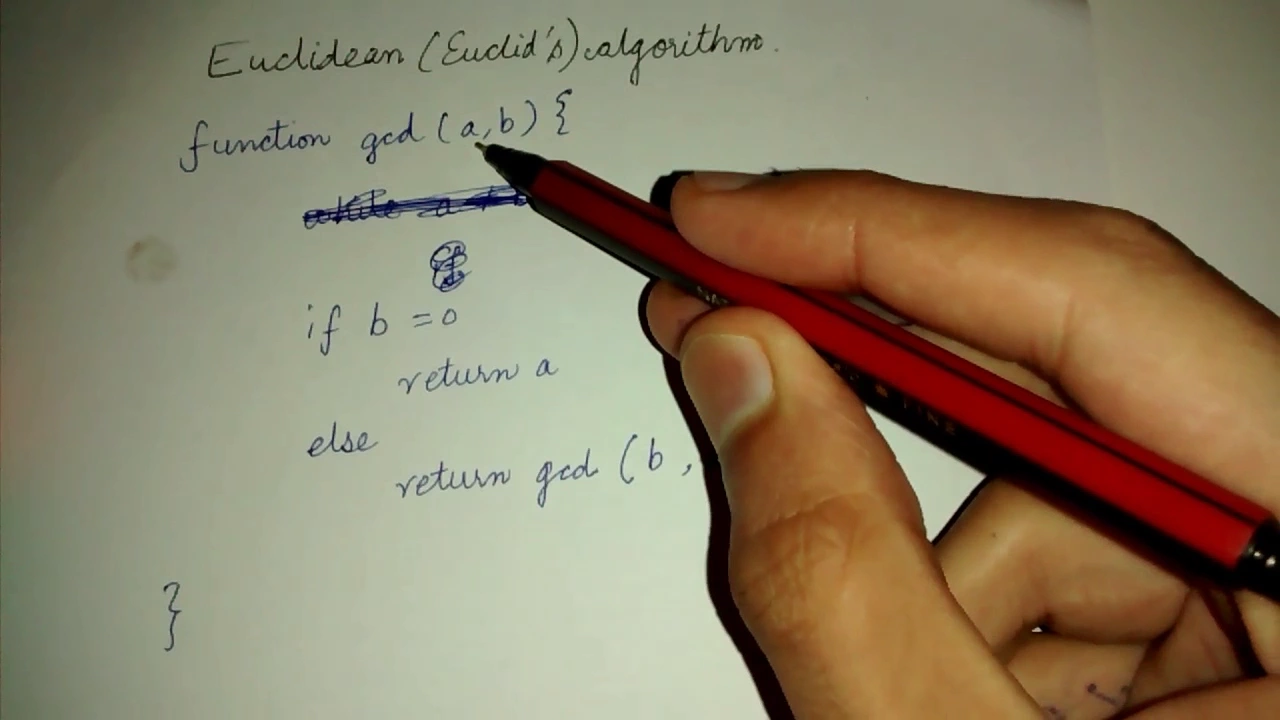 Euclidean (Euclid's) algorithm.
function gcd (a,b) {
if b = 0
return a
else
return gcd (b ,
}